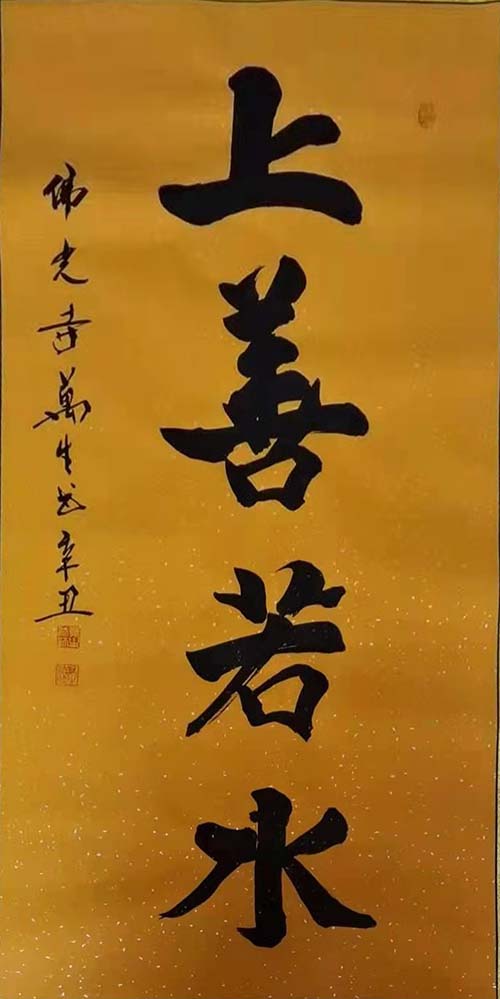 上善若水
佛光寺萬生书辛丑